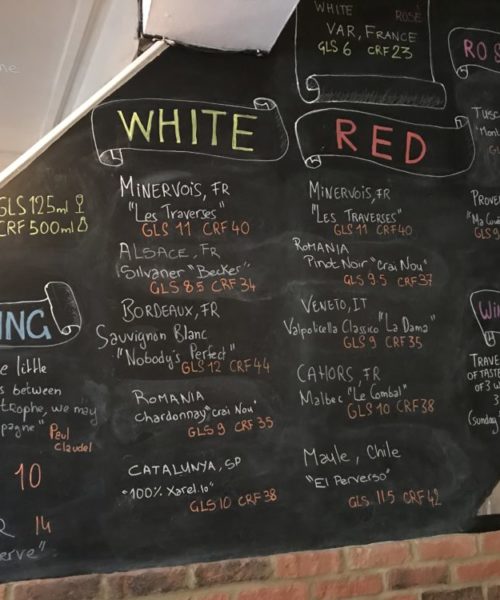 WHITE ROSÉ
VAR, FRANCE
GLS 6 CRF 23
GLS 125ml
CRF 500ml
WHITE
MINERVOIS, FR
"LES TRAVERSES"
GLS 11 CRF 40
ALSACE, FR
Silvaner "Becker"
GLS 8.5 CRF 34
BORDEAUX, FR
Sauvignon Blanc
"Nobody's Perfect"
GLS 12 CRF 44
ROMANIA
Chardonnay "Crai Nou"
GLS 9 CRF 35
CATALUNYA, SP
"100% Xarel.lo"
GLS 10 CRF 38
RED
MINERVOIS, FR
"LES TRAVERSES"
GLS 11 CRF 40
ROMANIA
Pinot Noir "Crai Nou"
GLS 9.5 CRF 37
VENETO, IT
Valpolicella Classico "La Dama"
GLS 9 CRF 35
CAHORS, FR
Malbec "Le Combal"
GLS 10 CRF 38
Maule, Chile
"El Perverso"
GLS 11.5 CRF 42
ING
little
between
trophe, we may
pagne" Paul
Claudel
10
14
erve"
ROS
Tusc
PROVE
GLS
Wi
TRAVE
OF TASTE
OF 3
(Sunday